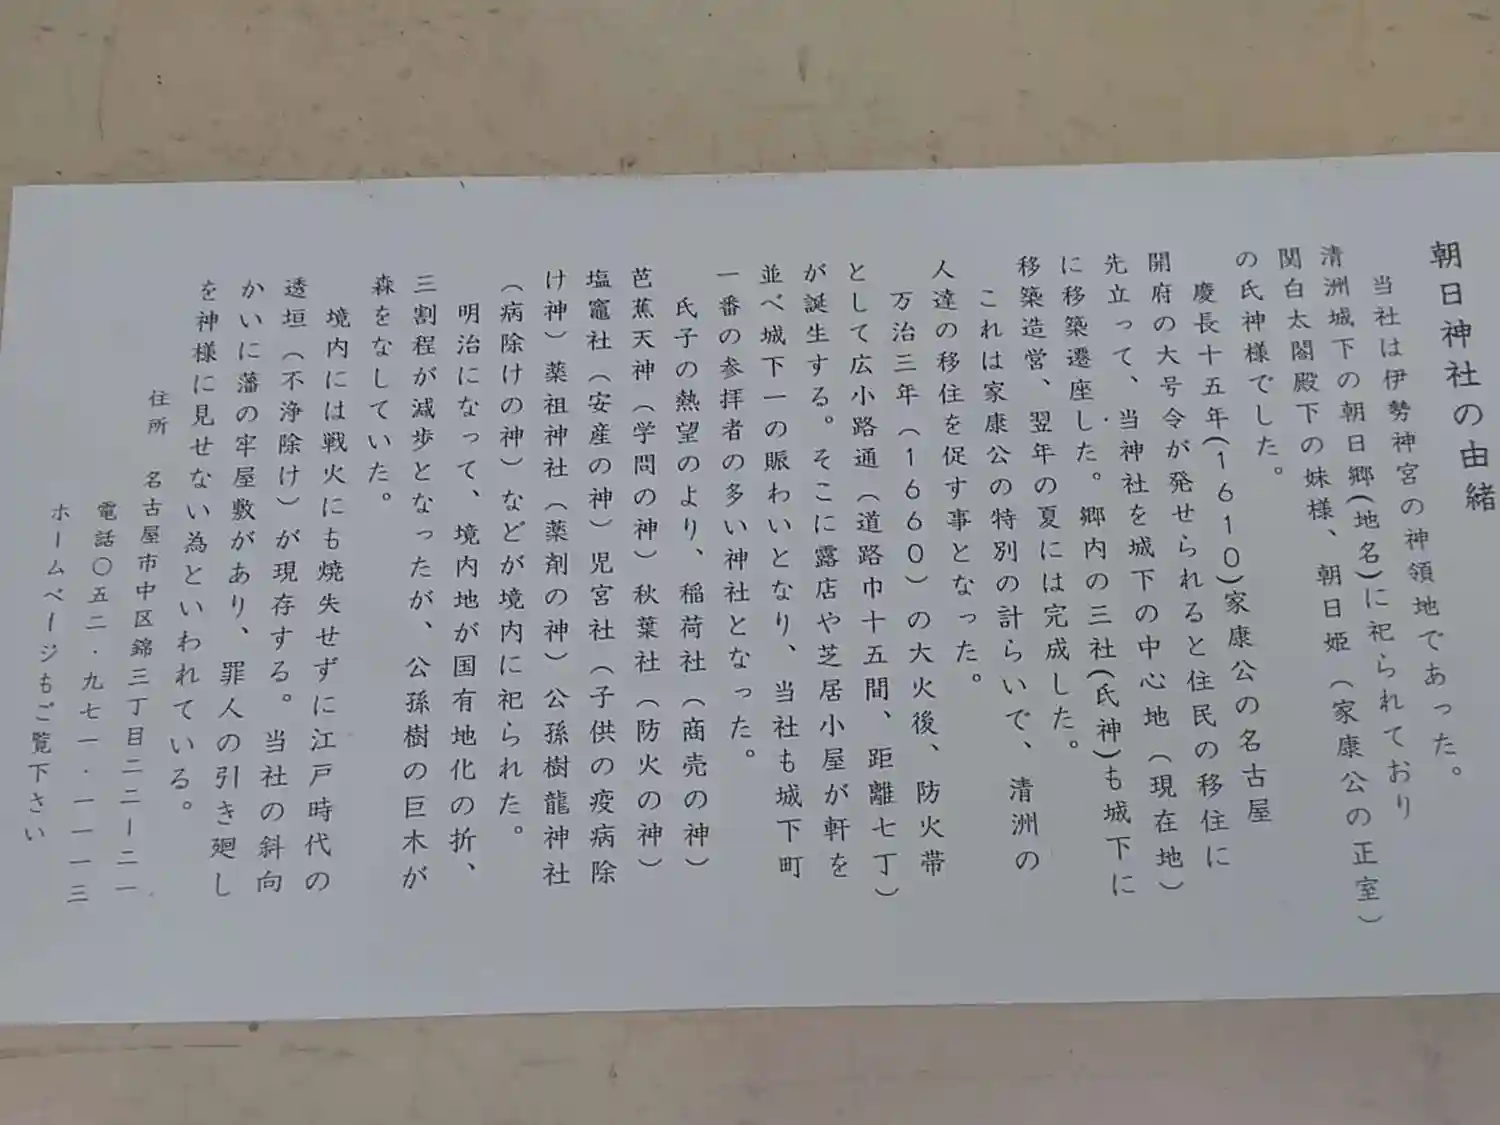 朝日神社の由緒
当社は伊勢神宮の神領地であった。
清洲城下の朝日郷(地名)に祀られており
関白太閤殿下の妹様、朝日姫（家康公の正室）
の氏神様でした。
慶長十五年(1610)家康公の名古屋
開府の大号令が発せられると住民の移住に
先立って、当神社を城下の中心地（現在地）
に移築遷座した。郷内の三社(氏神)も城下に
移築造営、翌年の夏には完成した。
これは家康公の特別の計らいで、清洲の
人達の移住を促す事となった。
万治三年（1660）の大火後、防火帯
として広小路通（道路巾十五間、距離七丁）
が誕生する。そこに露店や芝居小屋が軒を
並べ城下一の賑わいとなり、当社も城下町
一番の参拝者の多い神社となった。
氏子の熱望のより、稲荷社（商売の神）
芭蕉天神（学問の神）秋葉社（防火の神）
塩竈社（安産の神）児宮社（子供の疫病除
け神）薬祖神社（薬剤の神）公孫樹龍神社
（病除けの神）などが境内に祀られた。
明治になって、境内地が国有地化の折、
三割程が減歩となったが、公孫樹の巨木が
森をなしていた。
境内には戦火にも焼失せずに江戸時代の
透垣（不浄除け）が現存する。当社の斜向
かいに藩の牢屋敷があり、罪人の引き廻し
を神様に見せない為といわれている。
住所　名古屋市中区錦三丁目二二ー二一
電話〇五二．九七一．一一一三
ホームページもご覧下さい